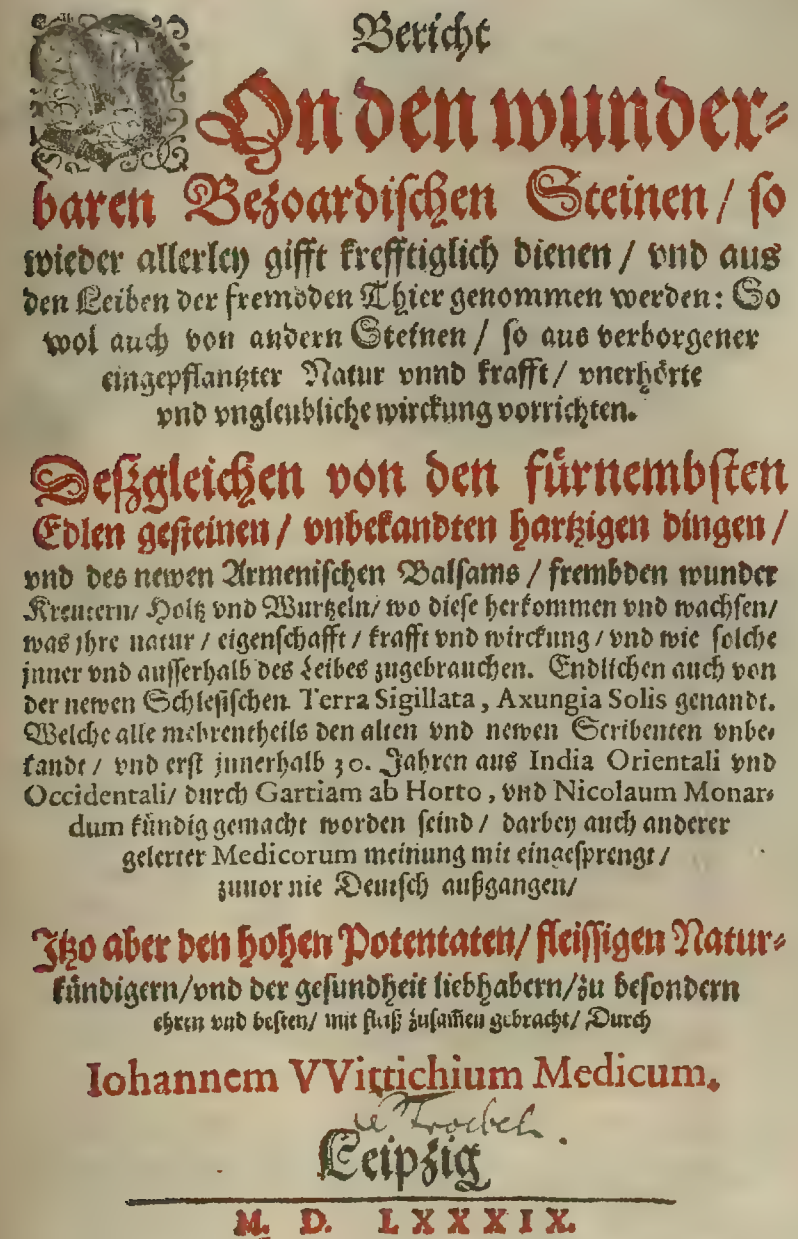 Bericht
VOn den wunder⸗
baren Bezoardischen Steinen / so
wieder allerley gifft krefftiglich dienen / vnd aus
den Leiben der frembden Thier genommen werden: So
wol auch von andern Steinen / so aus verborgener
eingepflantzter Natur vnnd krafft / vnerhörte
vnd vngleubliche wirckung vorrichten.
Deßgleichen von den fürnembsten
Edlen gesteinen / vnbekandten hartzigen dingen /
vnd des newen Armenischen Balsams / frembden wunder
Kreutern / Holtz vnd Wurtzeln / wo diese herkommen vnd wachsen /
was jhre natur / eigenschafft / krafft vnd wirckung / vnd wie solche
jnner vnd ausserhalb des Leibes zugebrauchen. Endlichen auch von
der newen Schlesischen Terra Sigillata, Axungia Solis genandt.
Welche alle mehrentheils den alten vnd newen Scribenten vnbe⸗
kandt / vnd erst jnnerhalb 30. Jahren aus India Orientali vnd
Occidentali / durch Gartiam ab Horto, vnd Nicolaum Monar⸗
dum kündig gemacht worden seind / darbey auch anderer
gelerter Medicorum meinung mit eingesprengt /
zuuor nie Deutsch außgangen /
Itzo aber den hohen Potentaten / fleissigen Natur⸗
kündigern / vnd der gesundheit liebhabern / zu besondern
ehren vnd besten / mit fleiß zusam̃en gebracht / Durch
Iohannem VVittichium Medicum.
Leipzig
M. D. LXXXIX.